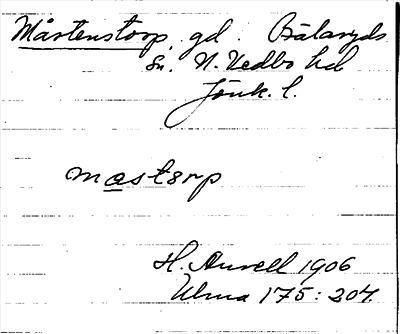 Mårtenstorp, gd. Bälaryds
sn. N. Vedbo hd
Jönk. l.
mastorp
H. Aurell 1906
Ulma 175: 207.